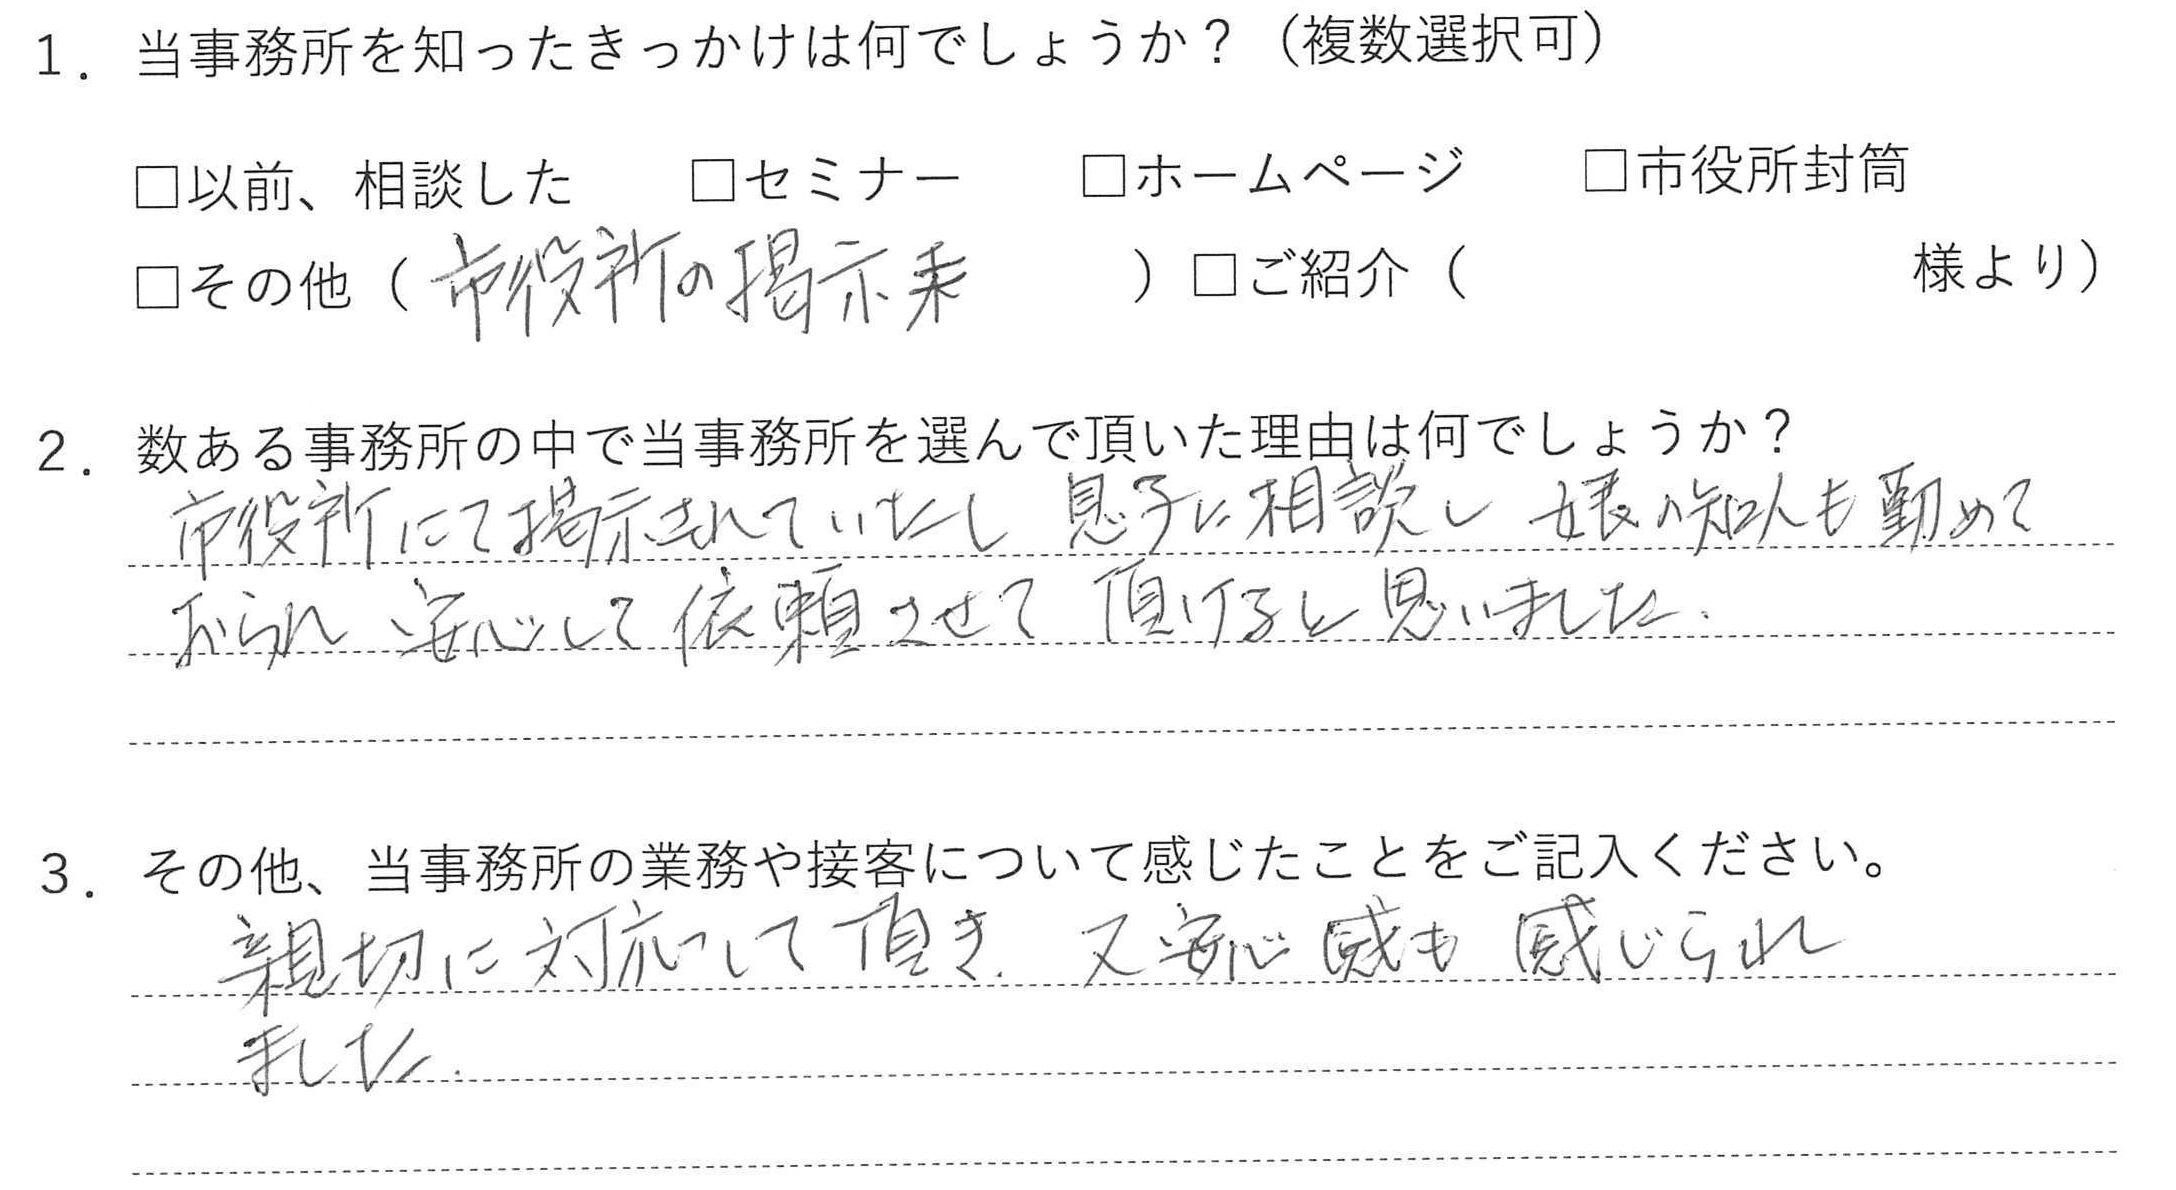 1. 当事務所を知ったきっかけは何でしょうか？（複数選択可）
□以前、相談した □セミナー □ホームページ □市役所封筒
□その他（市役所の掲示 ）□ご紹介（ 様より）
2. 数ある事務所の中で当事務所を選んで頂いた理由は何でしょうか？
市役所にて掲示されていたし 息子に相談し 娘の知人も勤めて
おられ 安心して依頼させて頂けると思いました.
3. その他、当事務所の業務や接客について感じたことをご記入ください。
親切に対応して頂き. 又安心感も感じられ
ました.